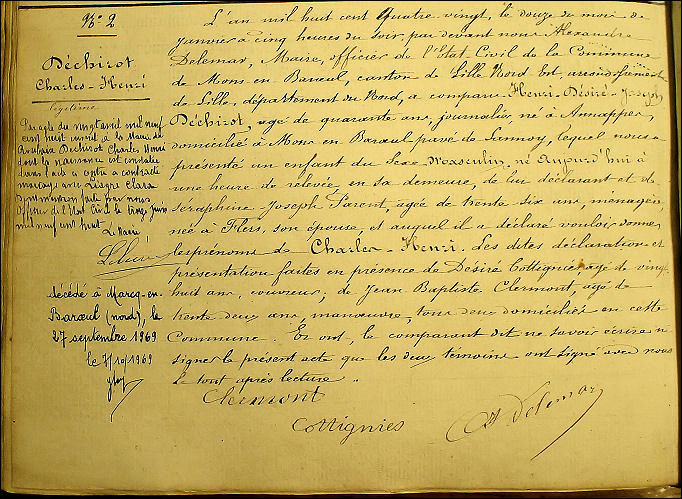 N° 2
Déchirot
Charles-Henri
légitime
Par acte du vingt avril mil neuf
cent huit inscrit à la Mairie de
Déchirot Charles Henri
dont la naissance est constatée
dans l'acte ci contre a contracté
mariage avec Clara
mention faite par nous
officier de l'Etat Civil le treize juin
mil neuf cent huit
Le Maire
décédé à Marcq-en-
Barœul (nord), le
27 septembre 1969
le 7/10/1969
L'an mil huit cent quatre vingt, le douze du mois de
janvier à cinq heures du soir, par devant nous Alexandre
Delemar, Maire, officier de l'Etat Civil de la Commune
de Mons en Barœul, canton de Lille Nord Est, arrondissement
de Lille, département du Nord, a comparu Henri-Désiré-Joseph
Déchirot, agé de quarante ans, journalier, né à Annappes,
domicilié à Mons en Barœul pavé de Lannoy, lequel nous a
présenté un enfant du Sexe Masculin, né Aujourd'hui à
une heure de relevée, en sa demeure, de lui déclarant et de
Séraphine-Joseph Parent, agée de trente six ans, ménagère,
née à Flers, son épouse, et auquel il a déclaré vouloir donner
les prénoms de Charles-Henri. Les dites déclaration et
présentation faites en présence de Désiré Cottignies agé de vingt
huit ans, couvreur, de Jean Baptiste Clermont, agé de
trente deux ans, manœuvre, tous deux domiciliés en cette
Commune. Et ont, le comparant dit ne savoir écrire ni
signer le présent acte que les deux témoins ont signé avec nous
le tout après lecture.
Clermont
Cottignies
A Delemar